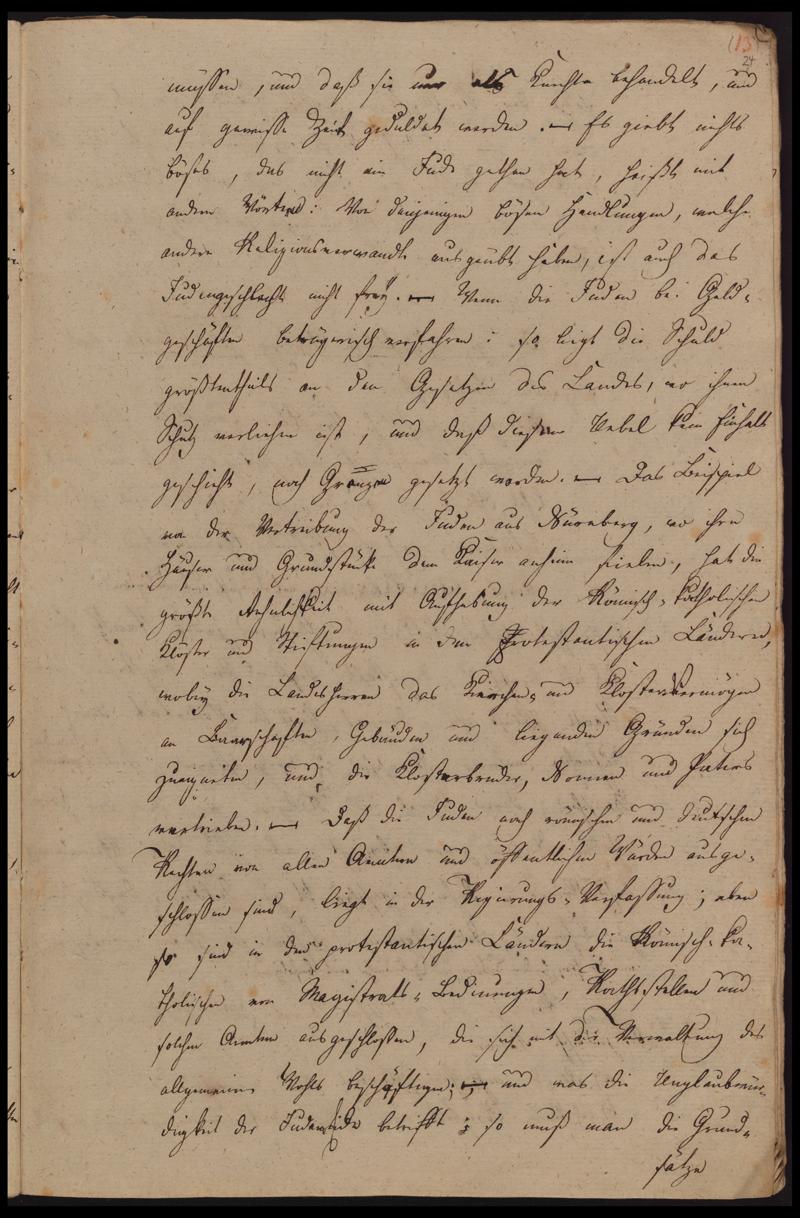 (13)
24
müssen, und daß sie nur als Knechte behandelt, und
auf gewisse Zeit geduldet werden. — Es giebt nichts
böses, das nicht ein Jude gethan hat, heißt mit
andern Worten: Von denjenigen bösen Handlungen, welche
andere Religionsverwandte ausgeübt haben, ist auch das
Judengeschlecht nicht frey. — Wenn die Juden bei Geld-
geschäften betrügerisch verfahren: so liegt die Schuld
größtentheils an den Gesetzen des Landes, wo ihnen
Schutz verliehen ist, und daß diesem Uebel kein Einhalt
geschieht, noch Gränzen gesetzt werden. — Das Beispiel
von der Vertreibung der Juden aus Nürnberg, wo ihre
Häuser und Grundstücke dem Kaiser anheim fielen, hat die
größte Aehnlichkeit mit Aufhebung der Römisch-katholischen
Klöster und Stiftungen in den Protestantischen Ländern,
wobey die Landesherren das Kirchen- und Klostervermögen
an Baarschaften, Gebäuden und liegenden Gründen sich
zueigneten, und die Klosterbrüder, Nonnen und Paters
vertrieben. — Daß die Juden nach römischen und deutschen
Rechten von allen Aemtern und öffentlichen Würden ausge-
schlossen sind, liegt in der Regierungs-Verfassung; eben
so sind in den protestantischen Ländern die Römisch-ka-
tholischen von Magistrats-Bedienungen, Rathsstellen und
solchen Aemtern ausgeschlossen, die sich mit der Verwaltung des
allgemeinen Wohls beschäftigen; — und was die Unglaubwür-
digkeit der Judeneide betrifft: so muß man die Grund-
sätze